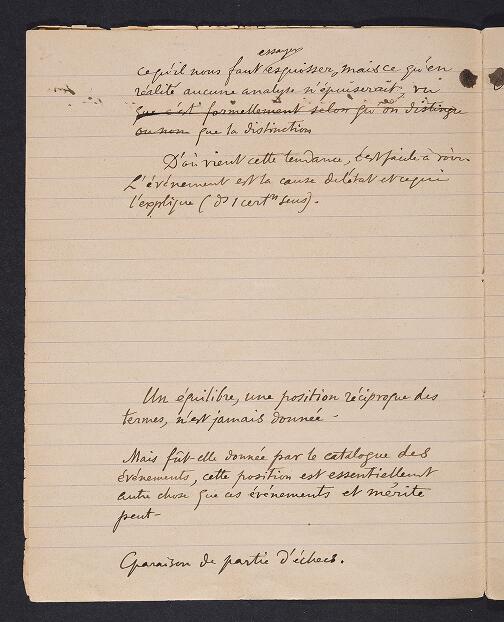 essayer
ce qu'il nous faut esquisser, mais ce qu'en
réalité aucune analyse n'épuiserait, vu
que c'est formellement selon qu'on distingue
ou non que la distinction
D'où vient cette tendance, c'est facile à voir.
L'événement est la cause de l'état et ce qui
l'explique (ds 1 certn sens).
Un équilibre, une position réciproque des
termes, n'est jamais donnée -
Mais fût-elle donnée par le catalogue des
événements, cette position est essentiellemt
autre chose que ces événements et mérite
peut-
Cparaison de partie d'échecs.